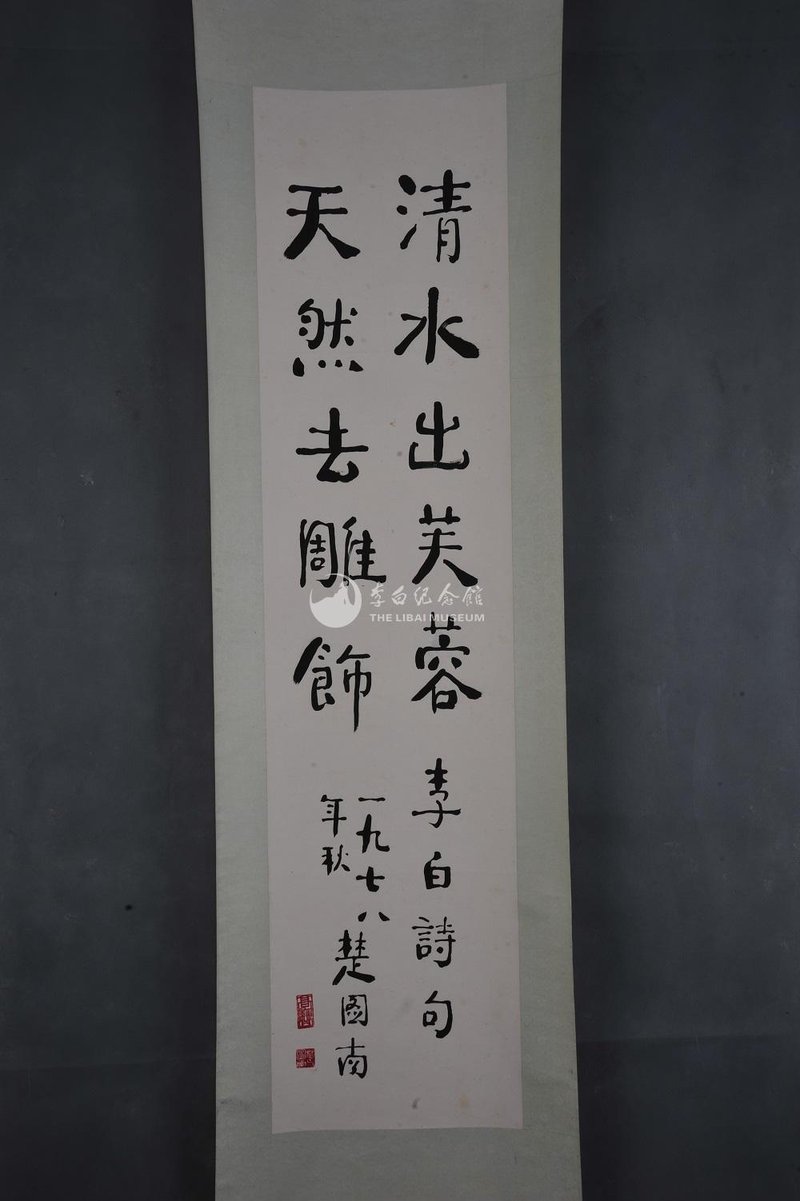 清水出芙蓉
李白詩句
天然去雕飾
一九七八
年秋
楚图南
李白纪念館
THE LIBAI MUSEUM